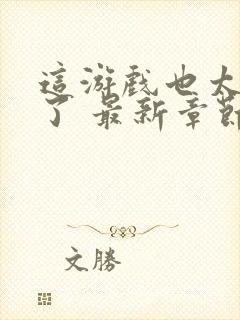 這游戲也太
了 最新章節
文勝